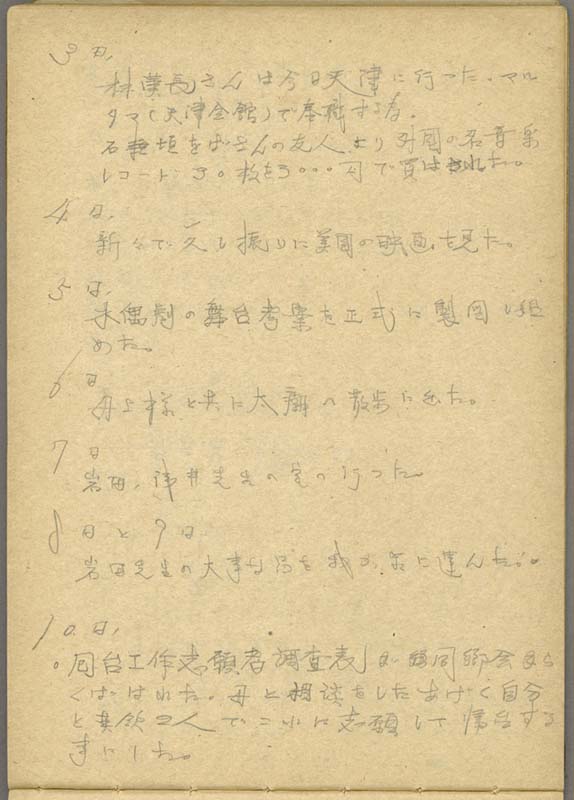 3日、
林漢長さんは今日天津に行つた。マル
タマ(天津会館)で奉職する為。
石垣をばさんの友人より外国の名音楽
レコード30枚を3000円で買はされた。
4日、
新々で久し振りに美国の映画を見た。
5日、
木偶劇の舞台考案を正式に製図し始
めた。
6日
母上様と共に太廟へ散歩に出た。
7日
岩田、澤井先生の宅へ行つた。
8日と9日
岩田先生の大事な品を我が家に運んだ。
10日、
。「回台工作志願者調査表」が同郷会から
くばはれた。母と相談をしたあげく自分
と 2人でこれに志願して帰台する
事にした。